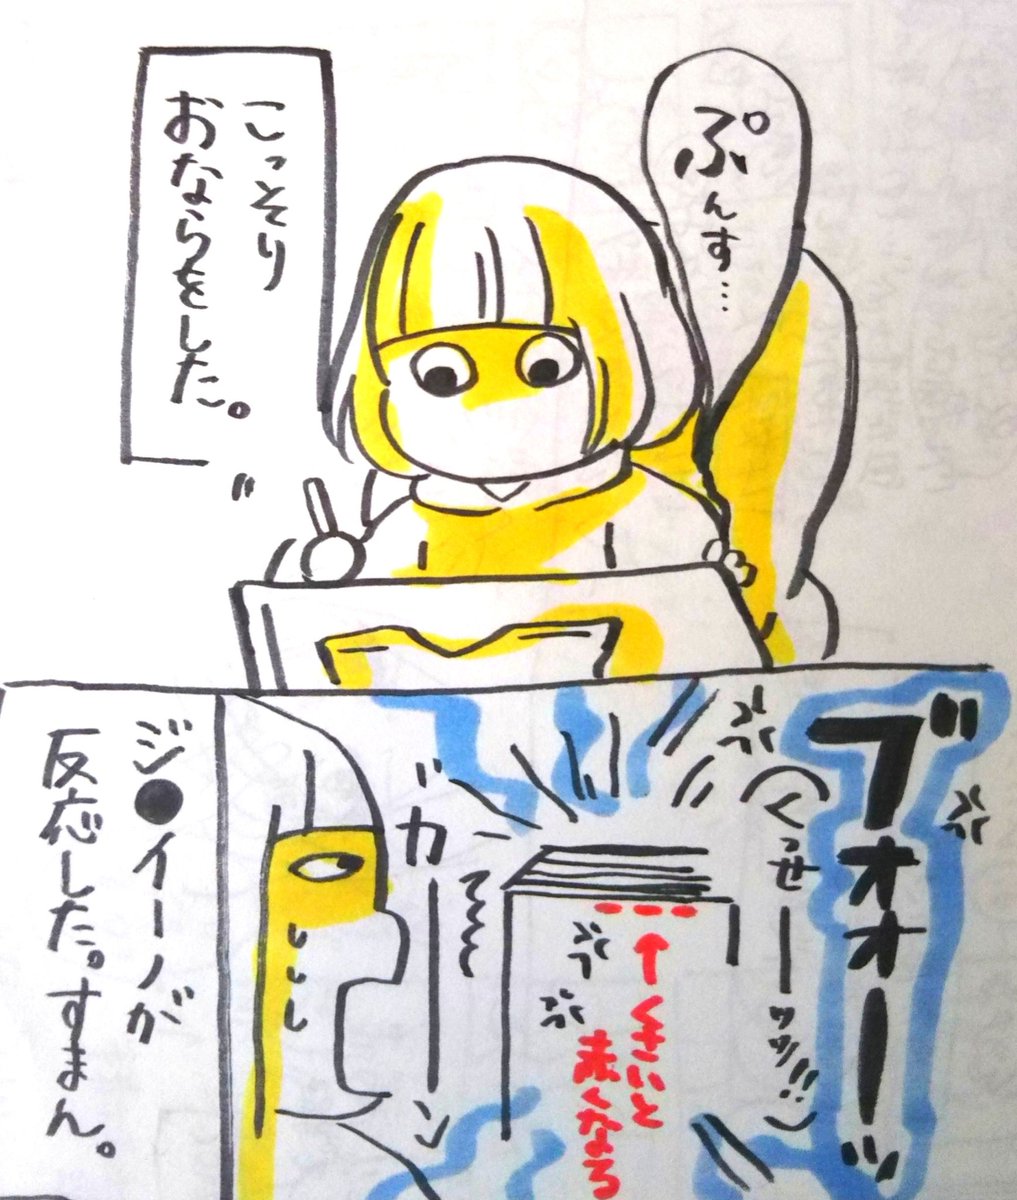 ぷんす…
こっそり
おならをした。
ブオオーーッ
(くっせーーッッ!!)
↑くさいと
赤くなる
ガーーン
ジ●イーノが
反応した。すまん。